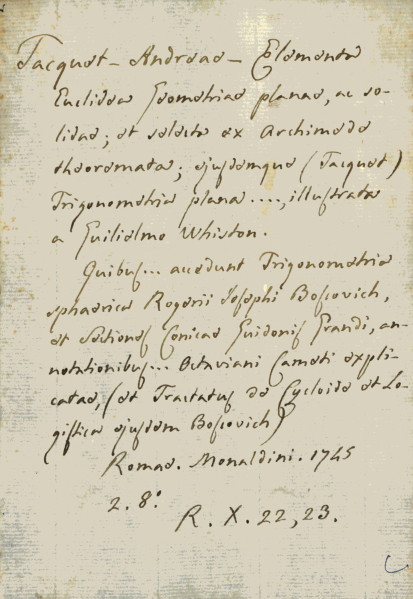 Tacquet - Andreae - Elementa
Euclidea Geometriae planae, ac so-
lidae; et selecta ex Archimede
theoremata; ejusdemque (Tacquet)
Trigonometria plana ...., illustrata
a Guilielmo Whiston.
Quibus... accedunt Trigonometria
sphaerica Rogerii Josephi Boscovich,
et Sectiones Conicae Guidonis Grandi, an-
notationibus... Octaviani Cameti expli-
catae, (et Tractatus de Cycloide et Lo-
gistica ejusdem Boscovich)
Romae. Monaldini. 1745
2. 8.º
R. X. 22, 23.